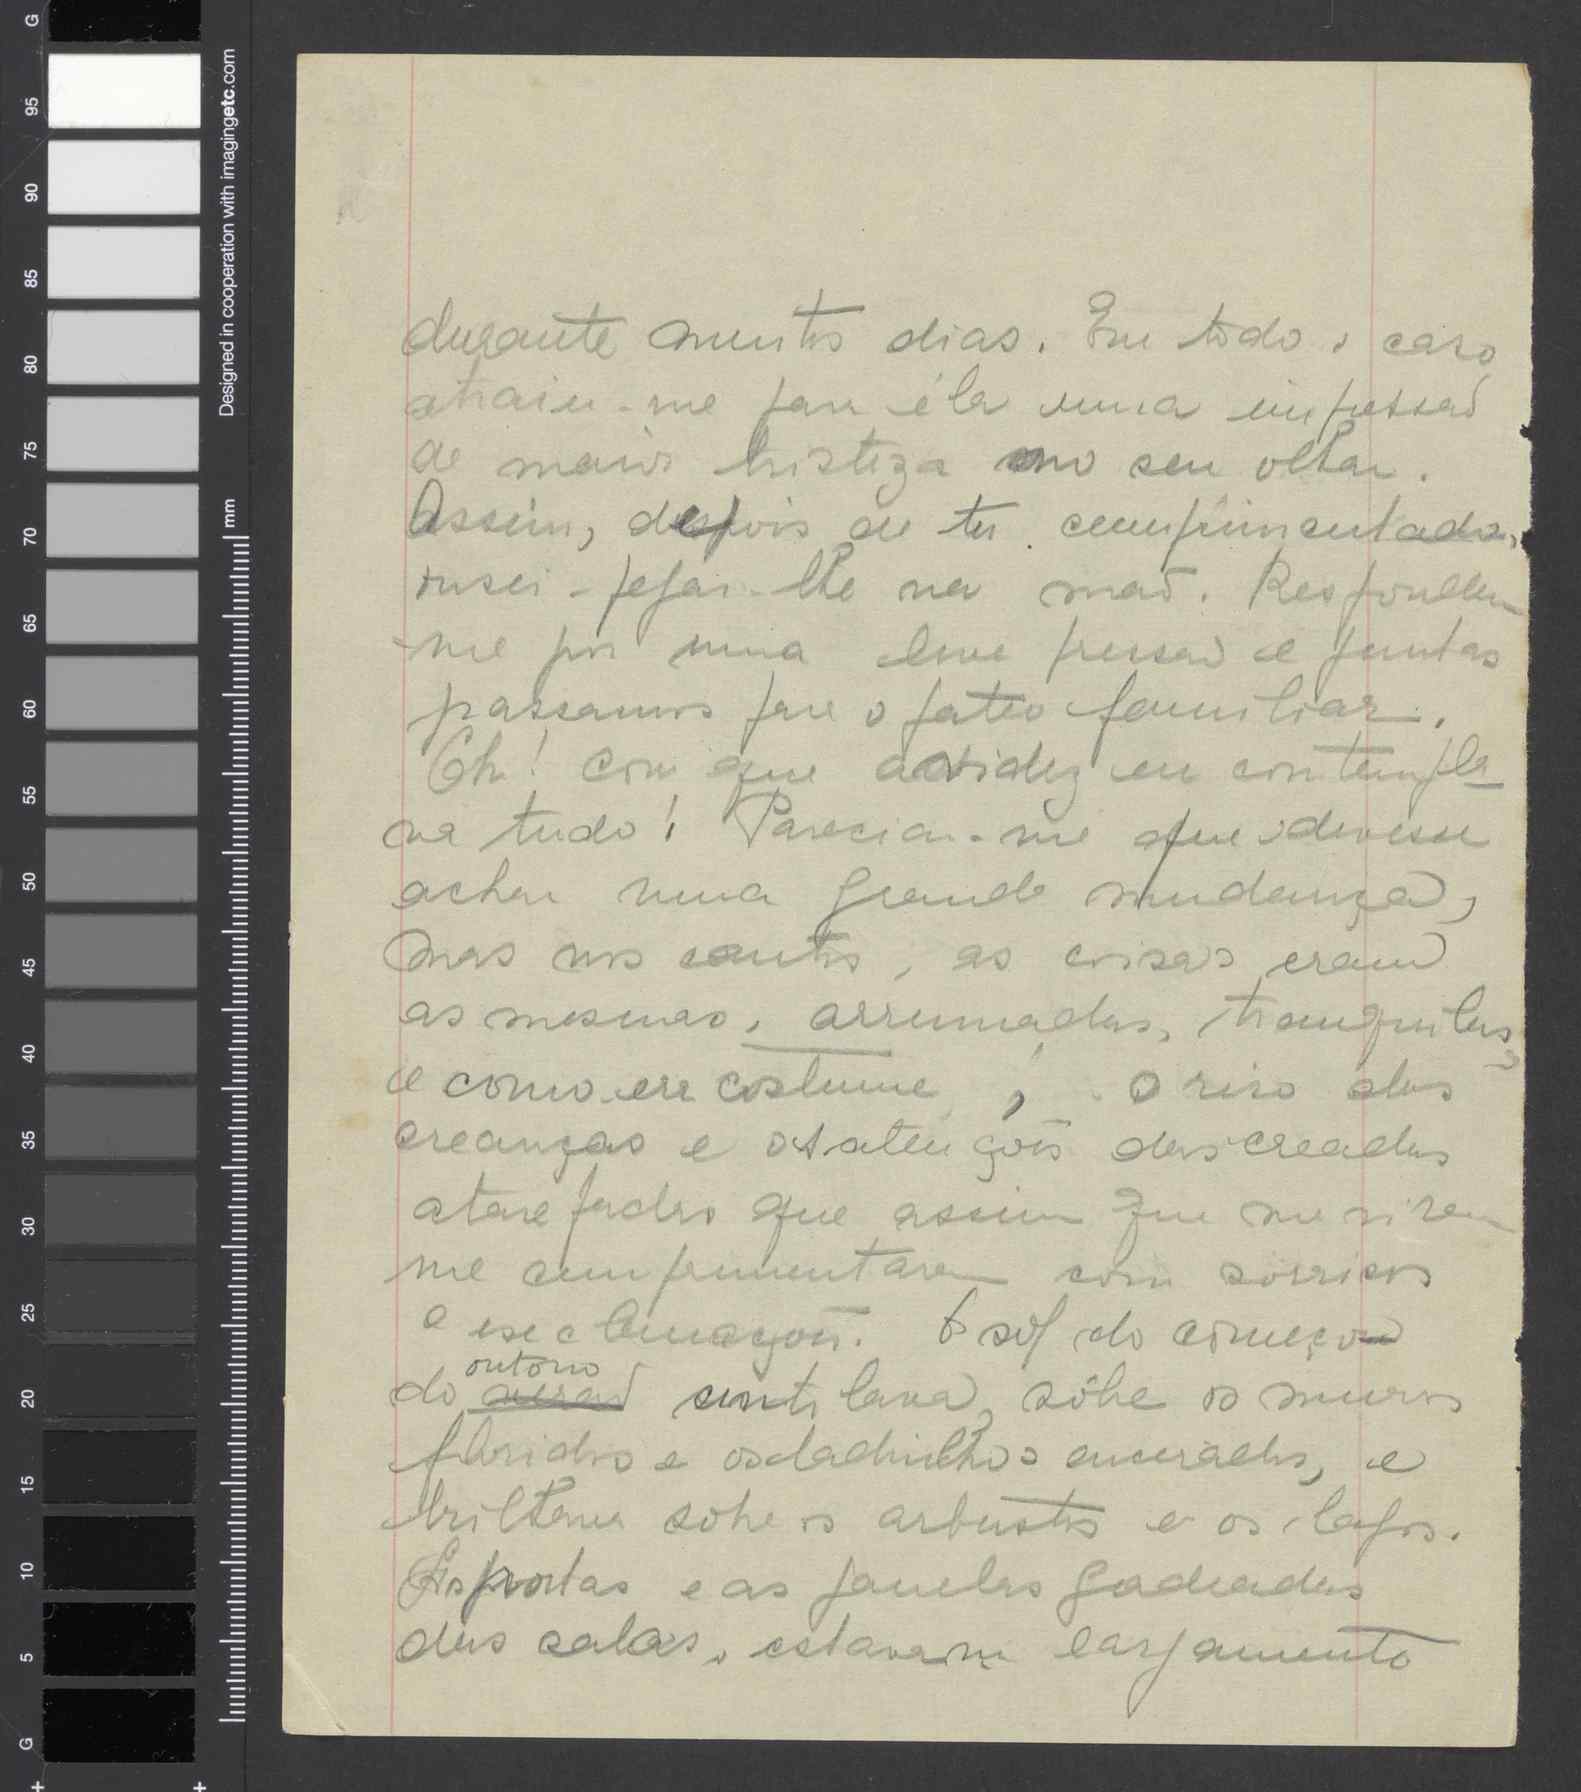 G
95
90
85
80
75
70
65
60
55
50
45
40
35
30
25
20
15
10
5
G
Designed in cooperation with imagingetc.com
mm
durante muitos dias. Em todo o caso
atraiu-me para éla uma impressaõ
de maior tristeza no seu olhar.
Assim, depois de ter cumprimentado,
ousei pegar-lhe na maõ. Respondeu
-me por uma leve pressaõ e juntas
passamos para o pateo familiar.
Oh! Com que avidez eu contempla
va tudo! Parecia-me que devesse
achar uma grande mudança,
mas nos cantos, as coisas eram
as mesmas, arrumadas, tranquilas,
e como era costume, o riso das
creanças e as atençoẽs das creadas
atarefadas que assim que me viram
me cumprimentaram com sorrisos
e esclamaçoẽs. O sol do começo
do outono
veraõ
scintilava, sôbre os muros
floridos e os ladrilhos encerados, e
brilhava sobre os arbustos e os lagos.
As portas e as janelas gradeadas
das salas, estavam largamente